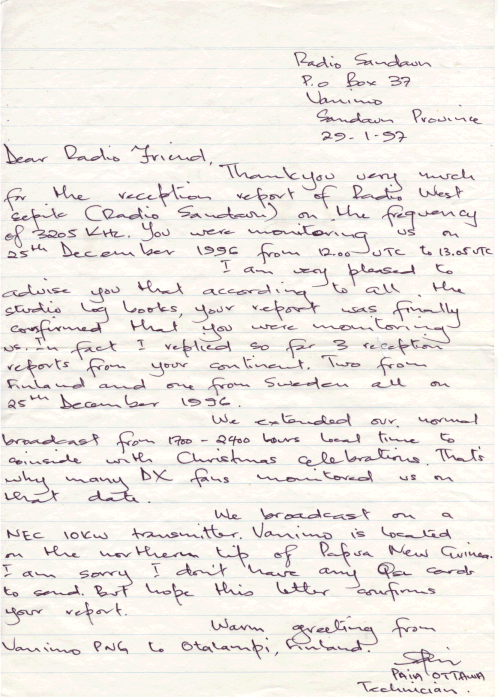 Radio Sandaun
P.o Box 37
Vanimo
Sandaun Province
29-1-97
Dear Radio Friend,
Thankyou very much
for the reception report of Radio West
Sepik (Radio Sandaun) on the frequency
of 3205 KHz. You were monitoring us on
25th December 1996 from 12.00 UTC to 13.05 UTC
I am very pleased to
advise you that according to all the
studio log books, your report was finally
confirmed that you were monitoring
us. In fact I replied so far 3 reception
reports from your continent. Two from
Finland and one from Sweden all on
25th December 1996.
We extended our normal
broadcast from 1700 - 2400 hours local time to
coinside with Christmas celebrations. That's
why many DX fans monitored us on
that date.
We broadcast on a
NEC 10KW transmitter. Vanimo is located
on the northern tip of Papua New Guinea.
I am sorry I don't have any Qsl cards
to send. But hope this letter confirms
your report.
Warm greeting from
Vanimo PNG to Otalampi, Finland.
PAIA OTTAWA
Technician.